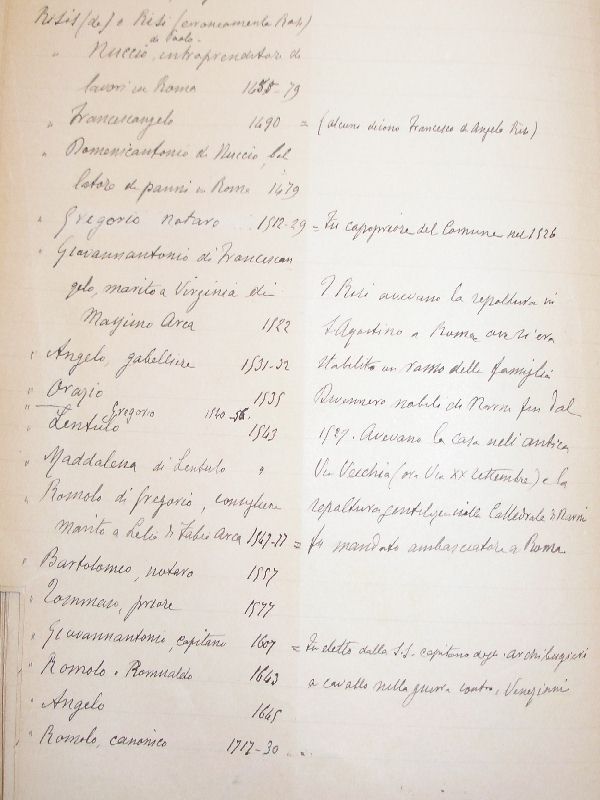 Risis (de) o Risi (erroneamente Rosi)
" Nuccio di Paolo, intraprenditore di
lavori in Roma 1455-79
" Francescangelo 1490 = (alcuni dicono Francesco d'Angelo Risi)
" Domenicantonio di Nuccio, bal
latore di panni in Roma 1479
" Gregorio notaro 1512-29 = Fu capopriore del Comune nel 1526
" Giovannantonio di Francescan
gelo, marito a Virginia di
Massimo Arca 1522
" Angelo, gabelliere 1531-32
" Orazio 1535
" Gregorio 1540-56.
" Lentulo 1543
" Maddalena di Lentulo "
" Romolo di Gregorio, consigliere
marito a Lelia di Fabio Arca 1547-77 = fu mandato ambasciatore a Roma
I Risi avevano la sepoltura in
S. Agostino a Roma ove si era
stabilito un ramo della famiglia
Divennero nobili di Narni fin dal
1527. Avevano la casa nell'antica
Via Vecchia (ora Via XX Settembre) e la
sepoltura gentilizia nella Cattedrale di Narni
" Bartolomeo, notaro 1557
" Tommaso, priore 1577
" Giovannantonio, capitano 1607 = Fu eletto dalla S.S. capitano degli archibugieri
a cavallo nella guerra contro i Veneziani
" Romolo o Romualdo 1643
" Angelo 1645
" Romolo, canonico 1717-30